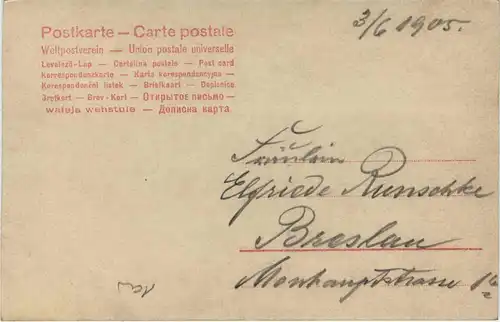 Postkarte — Carte postale
Weltpostverein — Union postale universelle
Levelező-Lap — Cartolina postale — Post card
Korespondenzkarte — Karta korespondencyjna —
Korespondenční lístek — Briefkaart — Dopisnice
Brefkort — Brev-Kort — Открытое письмо —
Дописна карта.
3/6 1905.
Fräulein
Elfriede Runschke
Breslau